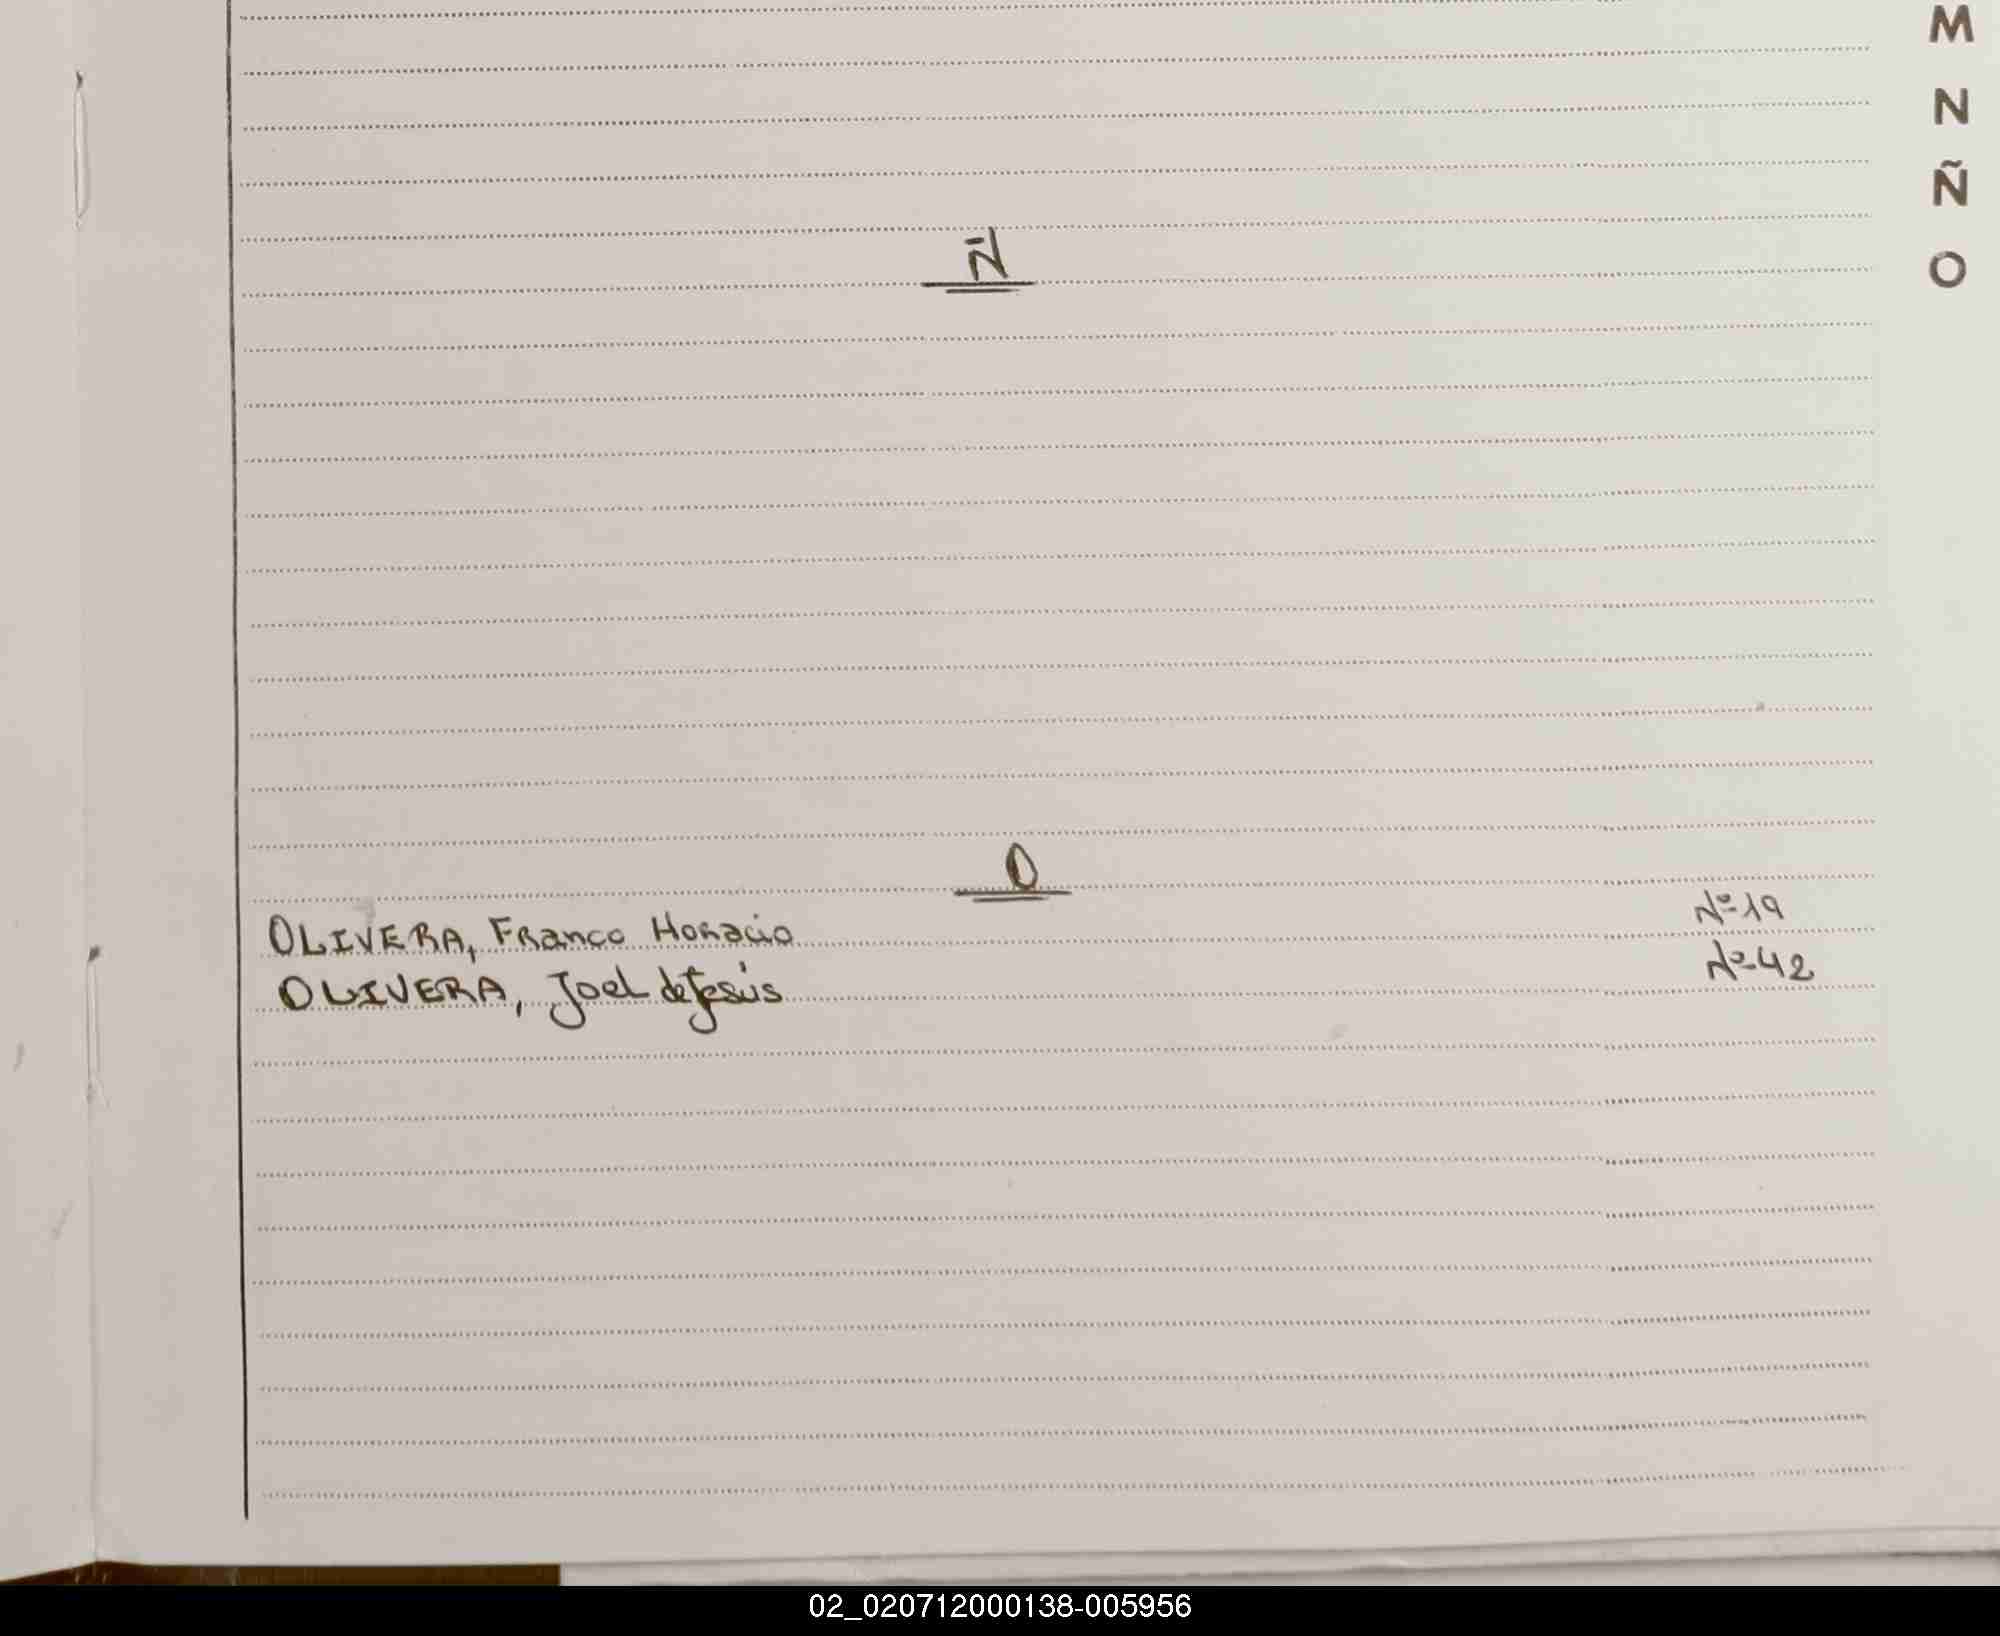 M
N
Ñ
O
Ñ
O
OLIVERA, Franco Horacio Nº 19
OLIVERA, Joel de Jesús Nº 42
02_020712000138-005956